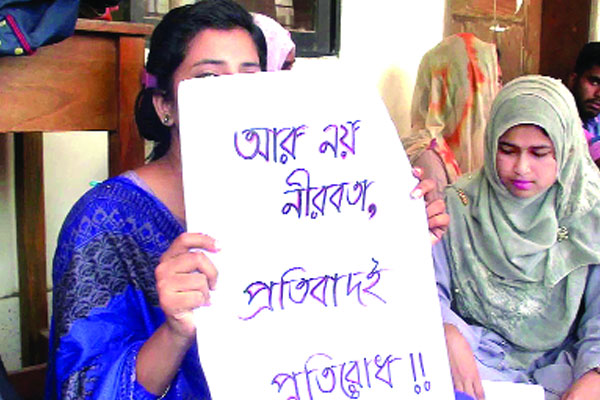 আর নয়
নীরবতা,
প্রতিবাদই
প্রতিরোধ!!